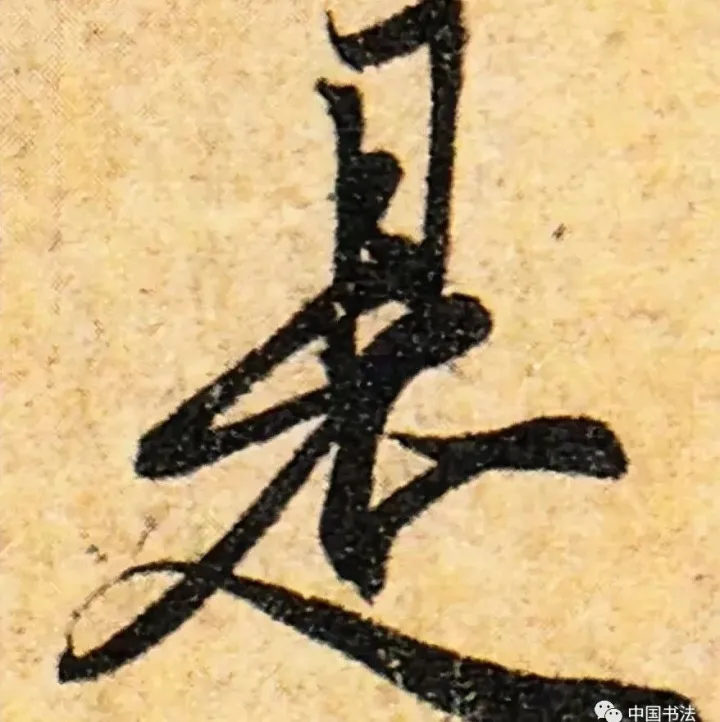 是
中国书法